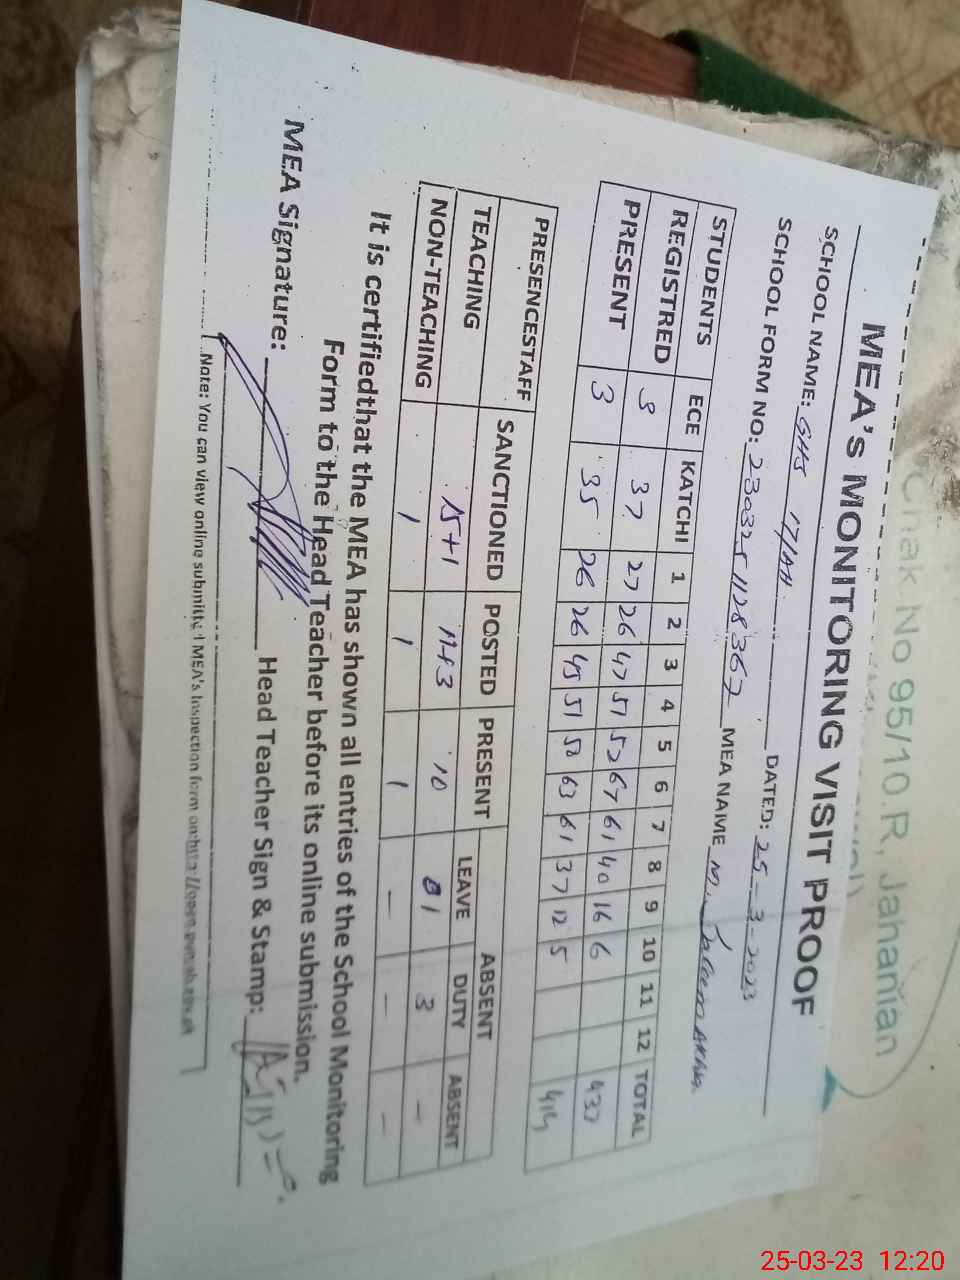 Chak No 95/10.R, Jahanian
MEA's MONITORING VISIT PROOF
SCHOOL NAME: GHS 17/AH DATED: 25-3-2023
SCHOOL FORM NO: 2303251128367 MEA NAME M.
STUDENTS ECE KATCHI 1 2 3 4 5 6 7 8 9 10 11 12 TOTAL
REGISTRED 3 37 27 26 47 51 52 67 61 40 16 6 437
PRESENT 3 35 26 26 45 51 50 63 61 37 12 5 414
PRESENCESTAFF SANCTIONED POSTED PRESENT ABSENT
LEAVE DUTY ABSENT
TEACHING 15+1 11+3 10 01 3 -
NON-TEACHING 1 1 1 - - -
It is certifiedthat the MEA has shown all entries of the School Monitoring
Form to the Head Teacher before its online submission.
MEA Signature: Head Teacher Sign & Stamp:
Note: You can view online submitted MEA's inspection form on
25-03-23 12:20